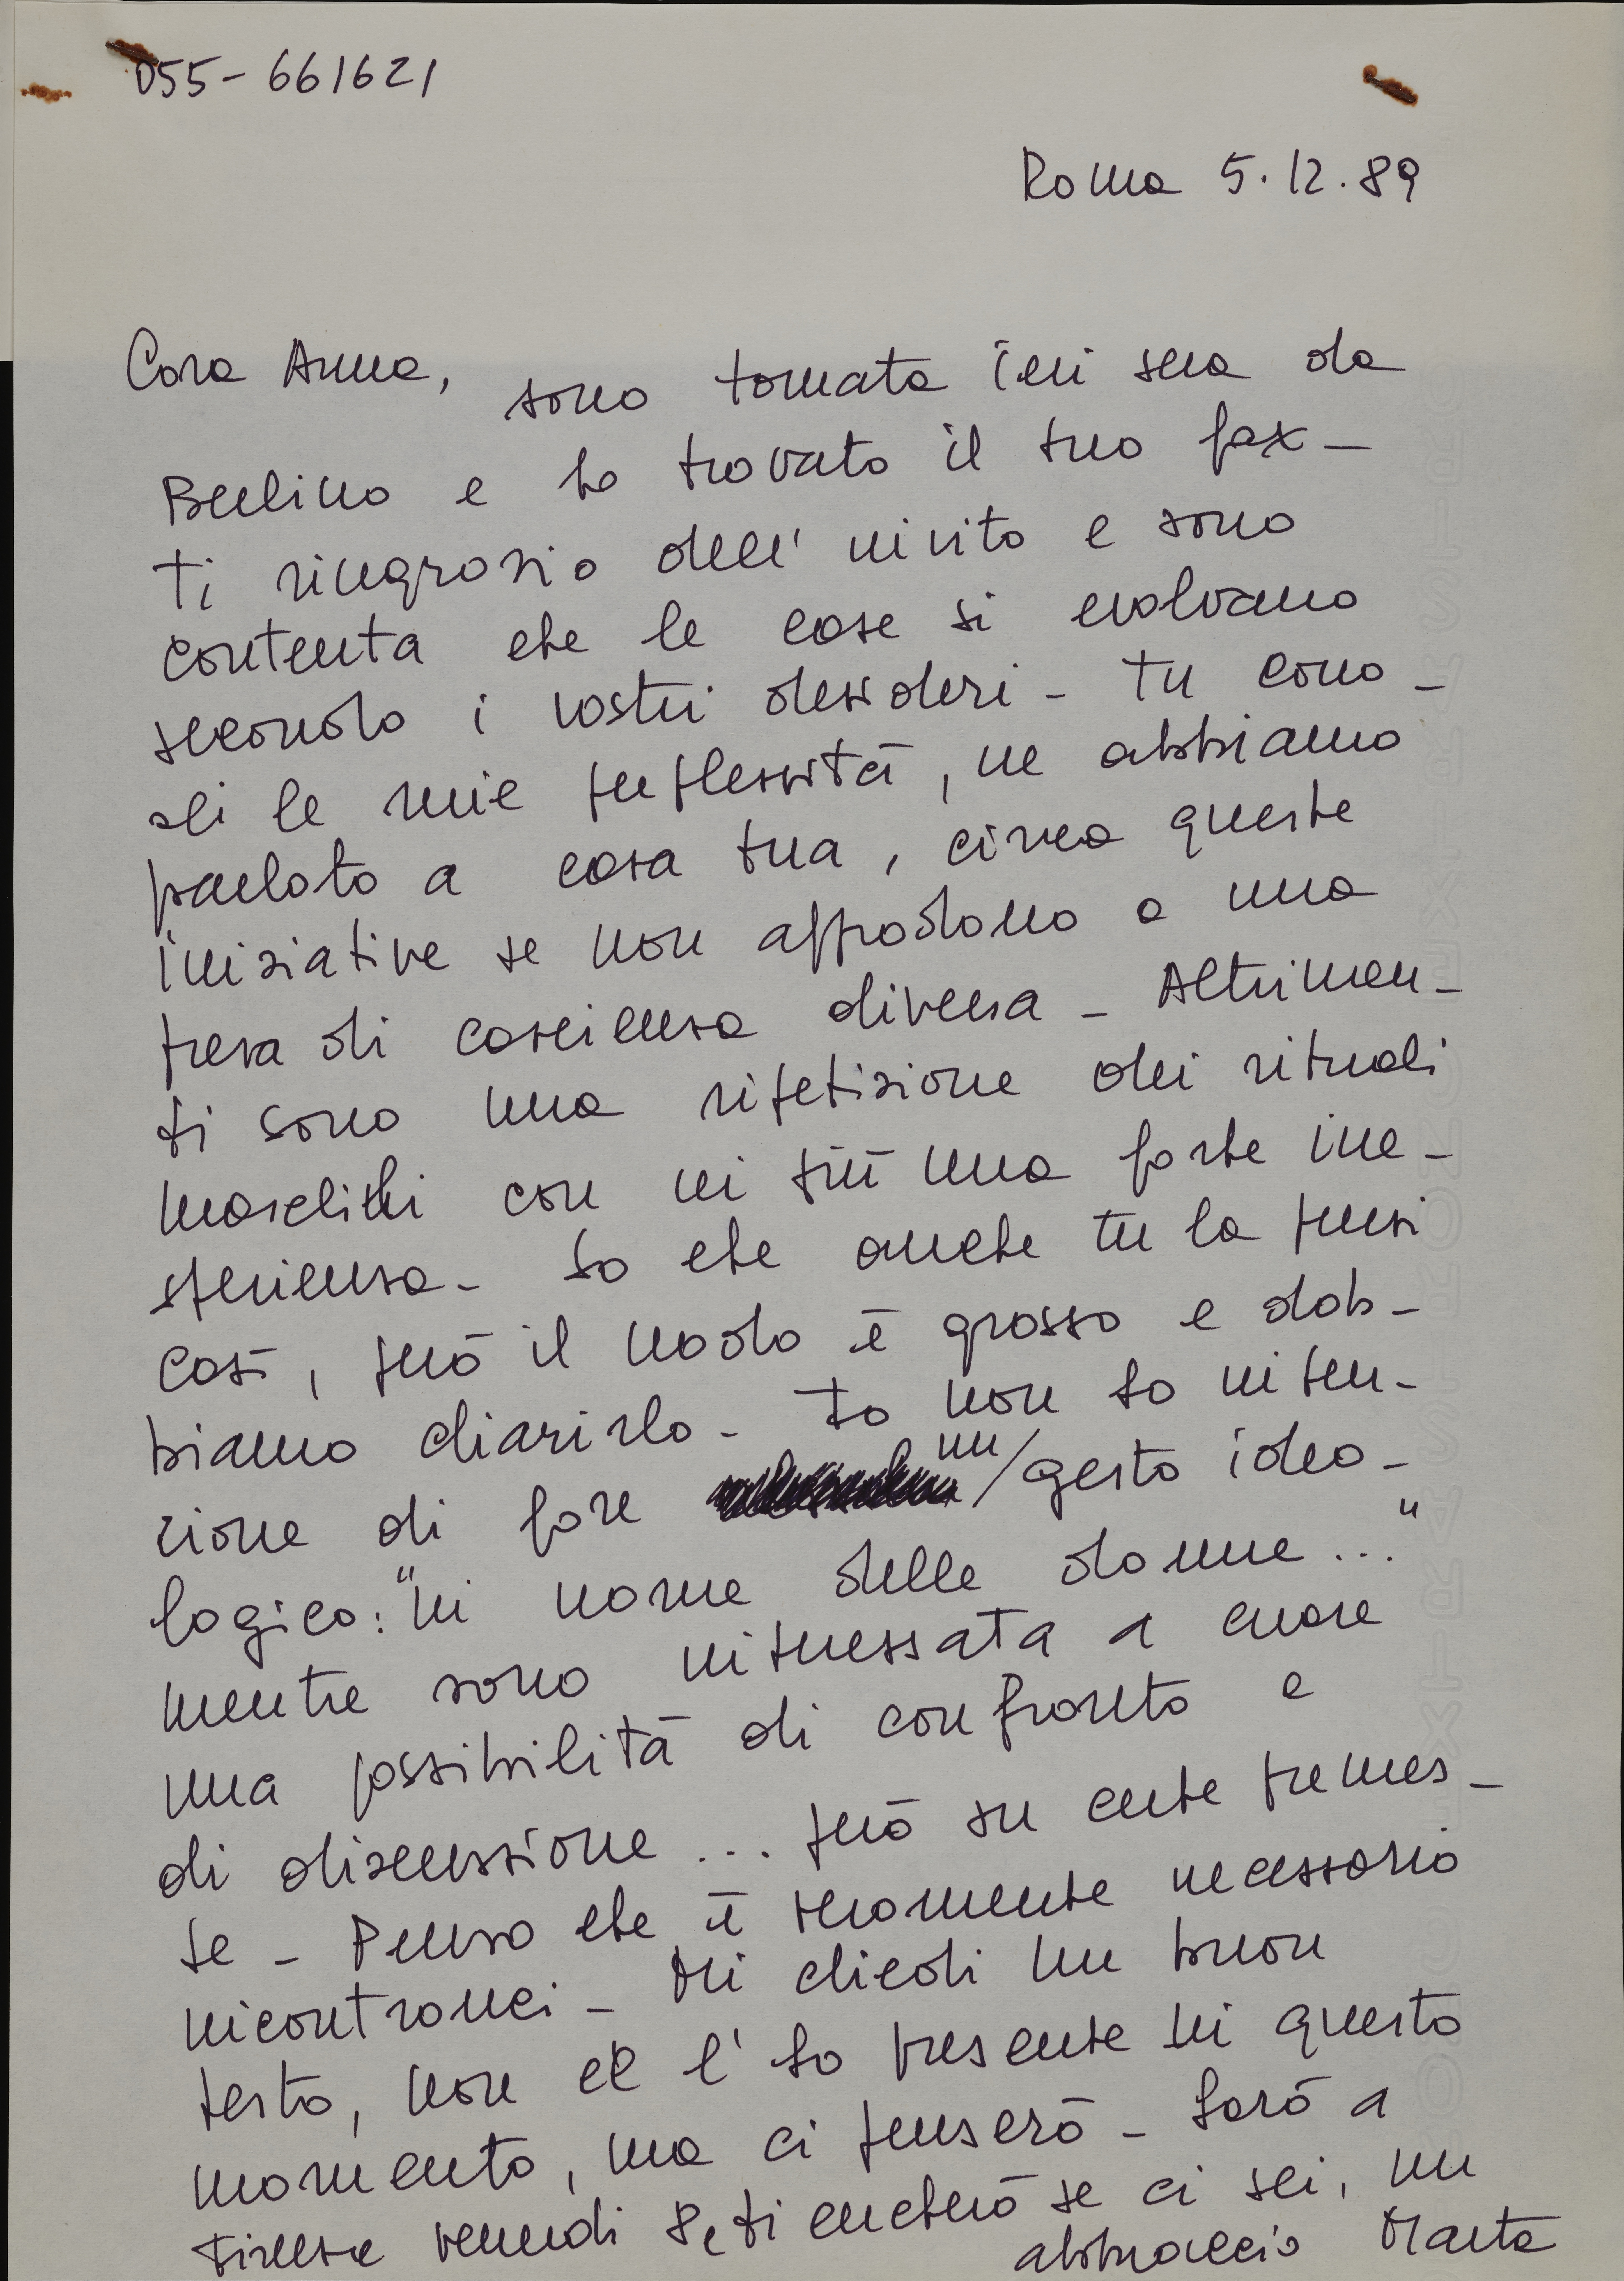 055-661621
Roma 5.12.89
Cara Anna, sono tornata ieri sera da
Berlino e ho trovato il tuo fax -
Ti ringrazio dell'invito e sono
contenta che le cose si evolvano
secondo i vostri desideri - Tu cono-
sci le mie perplessità, ne abbiamo
parlato a casa tua, circa queste
iniziative se non approdano a una
presa di coscienza diversa - Altrimen-
ti sono una ripetizione dei rituali
maschili con in più una forte ine-
sperienza - So che anche tu la pensi
così, però il nodo è grosso e dob-
biamo chiarirlo - Io non ho inten-
zione di fare un gesto ideo-
logico: "in nome delle donne..."
mentre sono interessata a cuore
una possibilità di confronto e
di discussione ... però su certe premes-
se - Penso che è veramente necessario
incontrarci - Mi chiedi un buon
testo, non ce l'ho presente in questo
momento, ma ci penserò - Sarò a
Firenze venerdì 8, ti cercherò se ci sei, un
abbraccio Marta